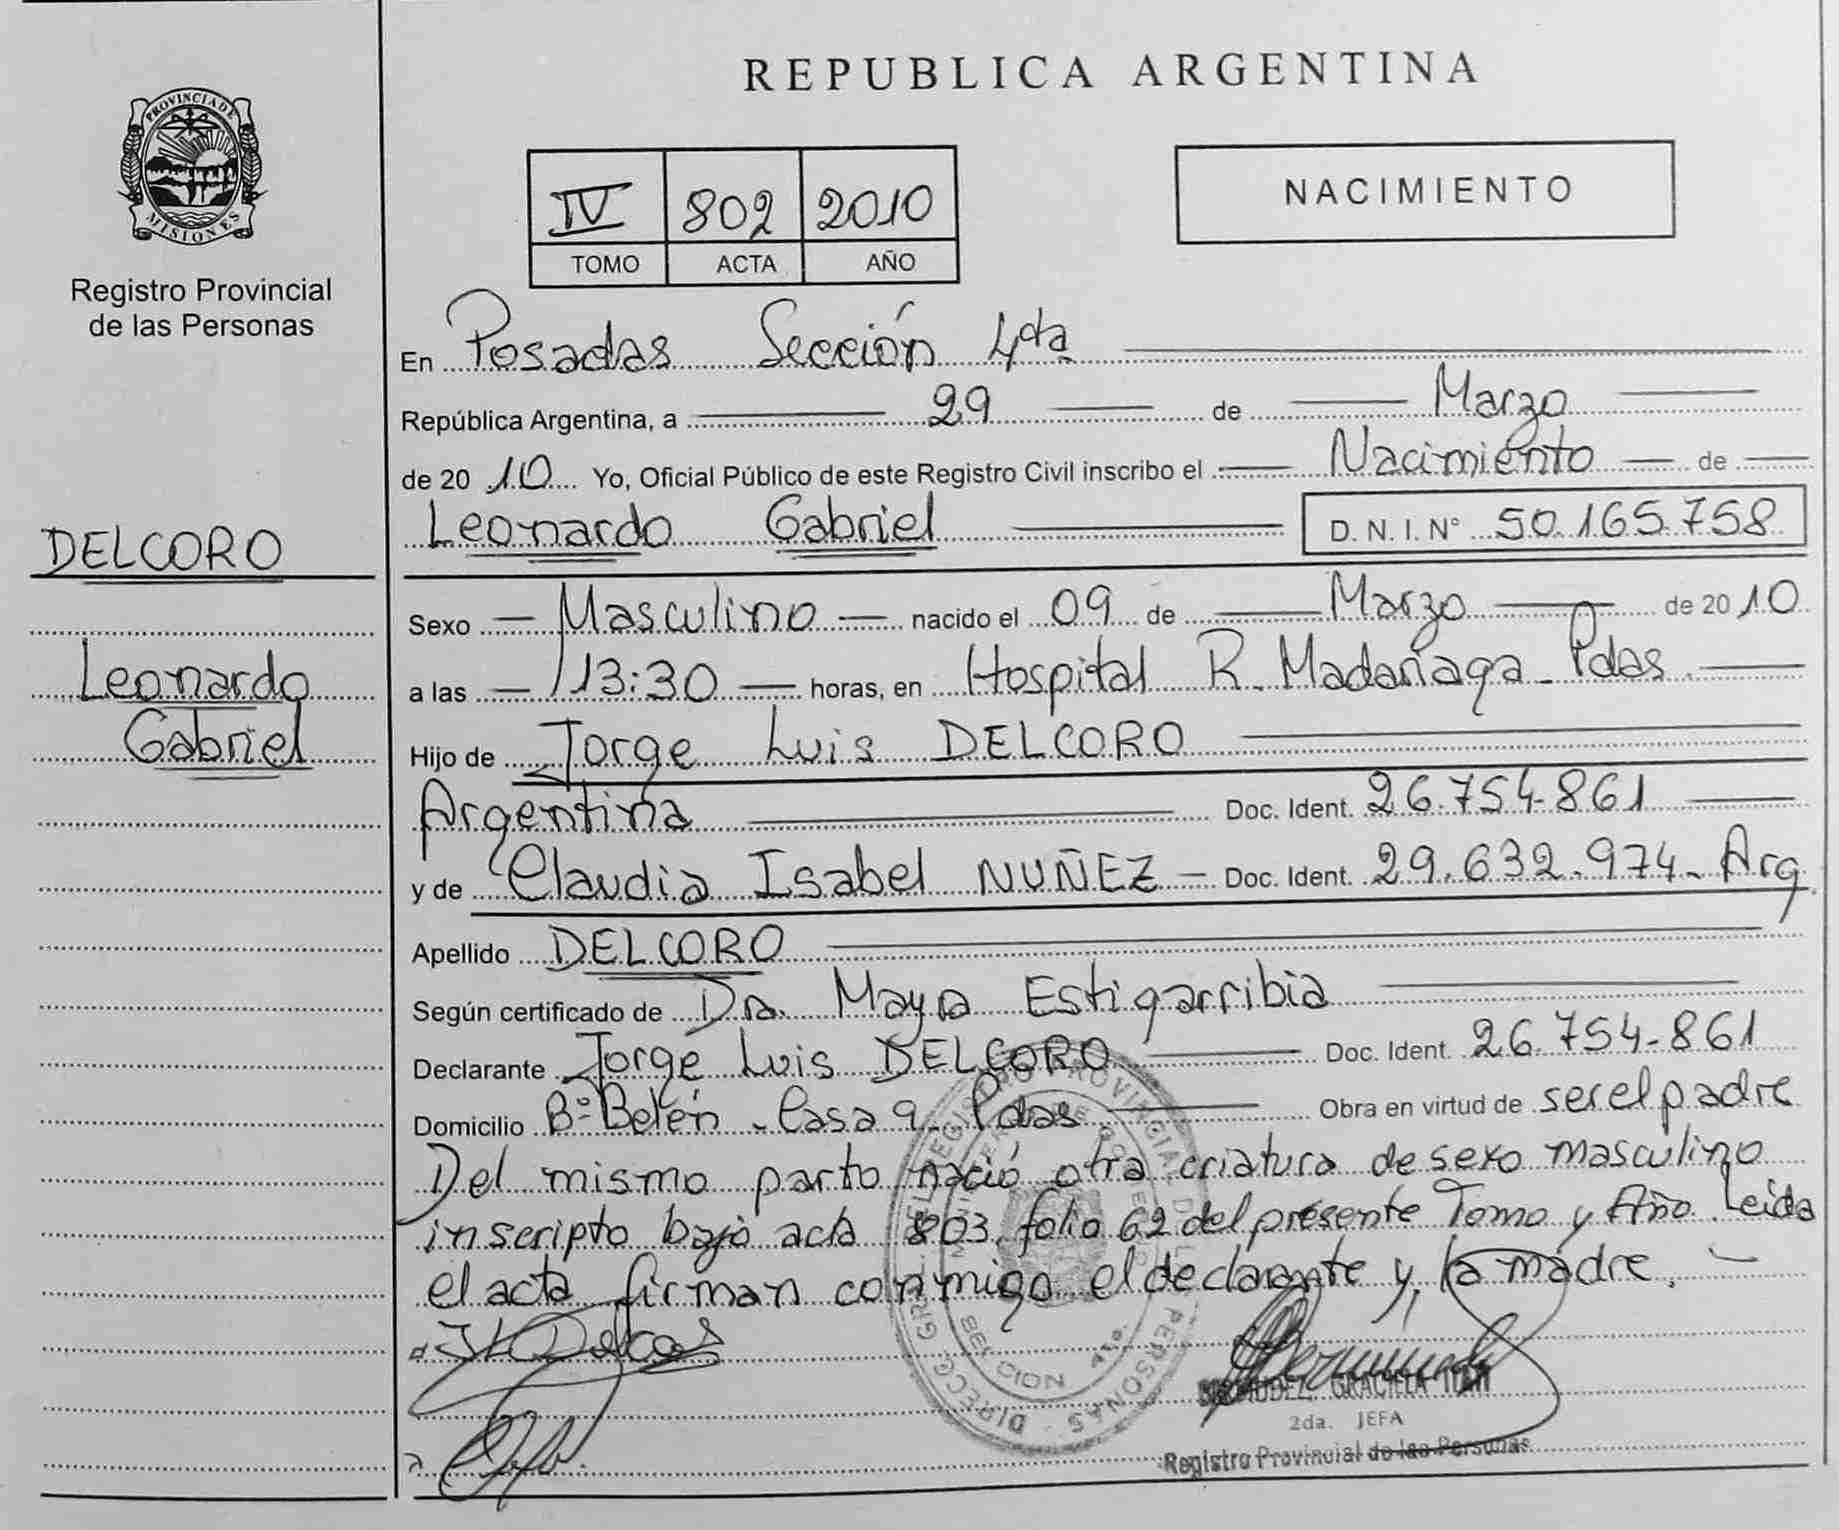 REPUBLICA ARGENTINA
PROVINCIA DE
MISIONES
Registro Provincial
de las Personas
IV 802 2010
TOMO ACTA AÑO
NACIMIENTO
En Posadas Sección 4ta
República Argentina, a 29 de Marzo
de 2010 Yo, Oficial Público de este Registro Civil inscribo el Nacimiento de
Leonardo Gabriel D. N. I. N° 50.165.758
DELCORO
Leonardo
Gabriel
Sexo Masculino nacido el 09 de Marzo de 2010
a las 13:30 horas, en Hospital R. Madariaga - Pdas
Hijo de Jorge Luis DELCORO
Argentina Doc. Ident. 26.754.861
y de Claudia Isabel NUÑEZ - Doc. Ident. 29.632.974 - Arg
Apellido DELCORO
Según certificado de Dra. Mayra Estigarribia
Declarante Jorge Luis DELCORO Doc. Ident. 26.754.861
Domicilio B° Belén - Casa 9 - Pdas Obra en virtud de ser el padre
Del mismo parto nació otra criatura de sexo masculino
inscripto bajo acta 803, folio 62 del presente Tomo y Año. Leida
el acta firman conmigo el declarante y la madre.
GRACIELA
2da. JEFA
Registro Provincial de las Personas